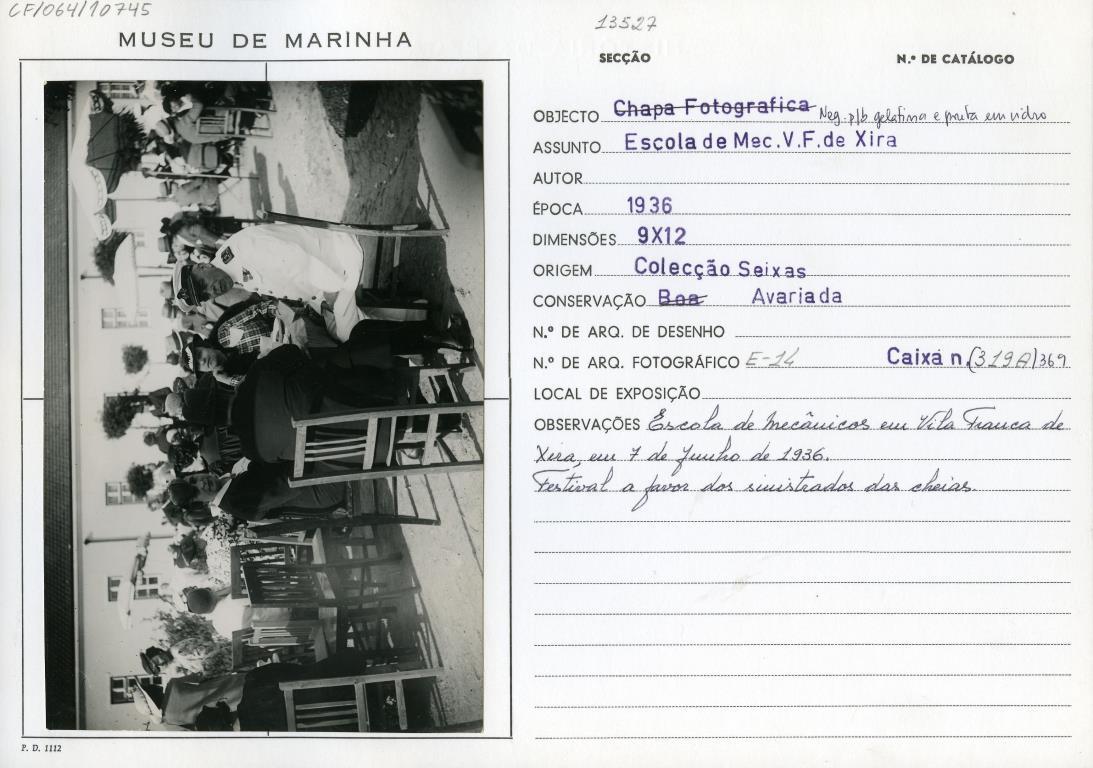 CF/064/10745
MUSEU DE MARINHA
13527
SECÇÃO N.º DE CATÁLOGO
OBJECTO Chapa Fotografica Neg. p/b gelatina e prata em vidro
ASSUNTO Escola de Mec. V.F. de Xira
AUTOR
ÉPOCA 1936
DIMENSÕES 9X12
ORIGEM Colecção Seixas
CONSERVAÇÃO Boa Avariada
N.º DE ARQ. DE DESENHO
N.º DE ARQ. FOTOGRÁFICO E-14 Caixa n. (319A) 369
LOCAL DE EXPOSIÇÃO
OBSERVAÇÕES Escola de Mecânicos em Vila Franca de
Xira, em 7 de Junho de 1936.
Festival a favor dos sinistrados das cheias.
P. D. 1112